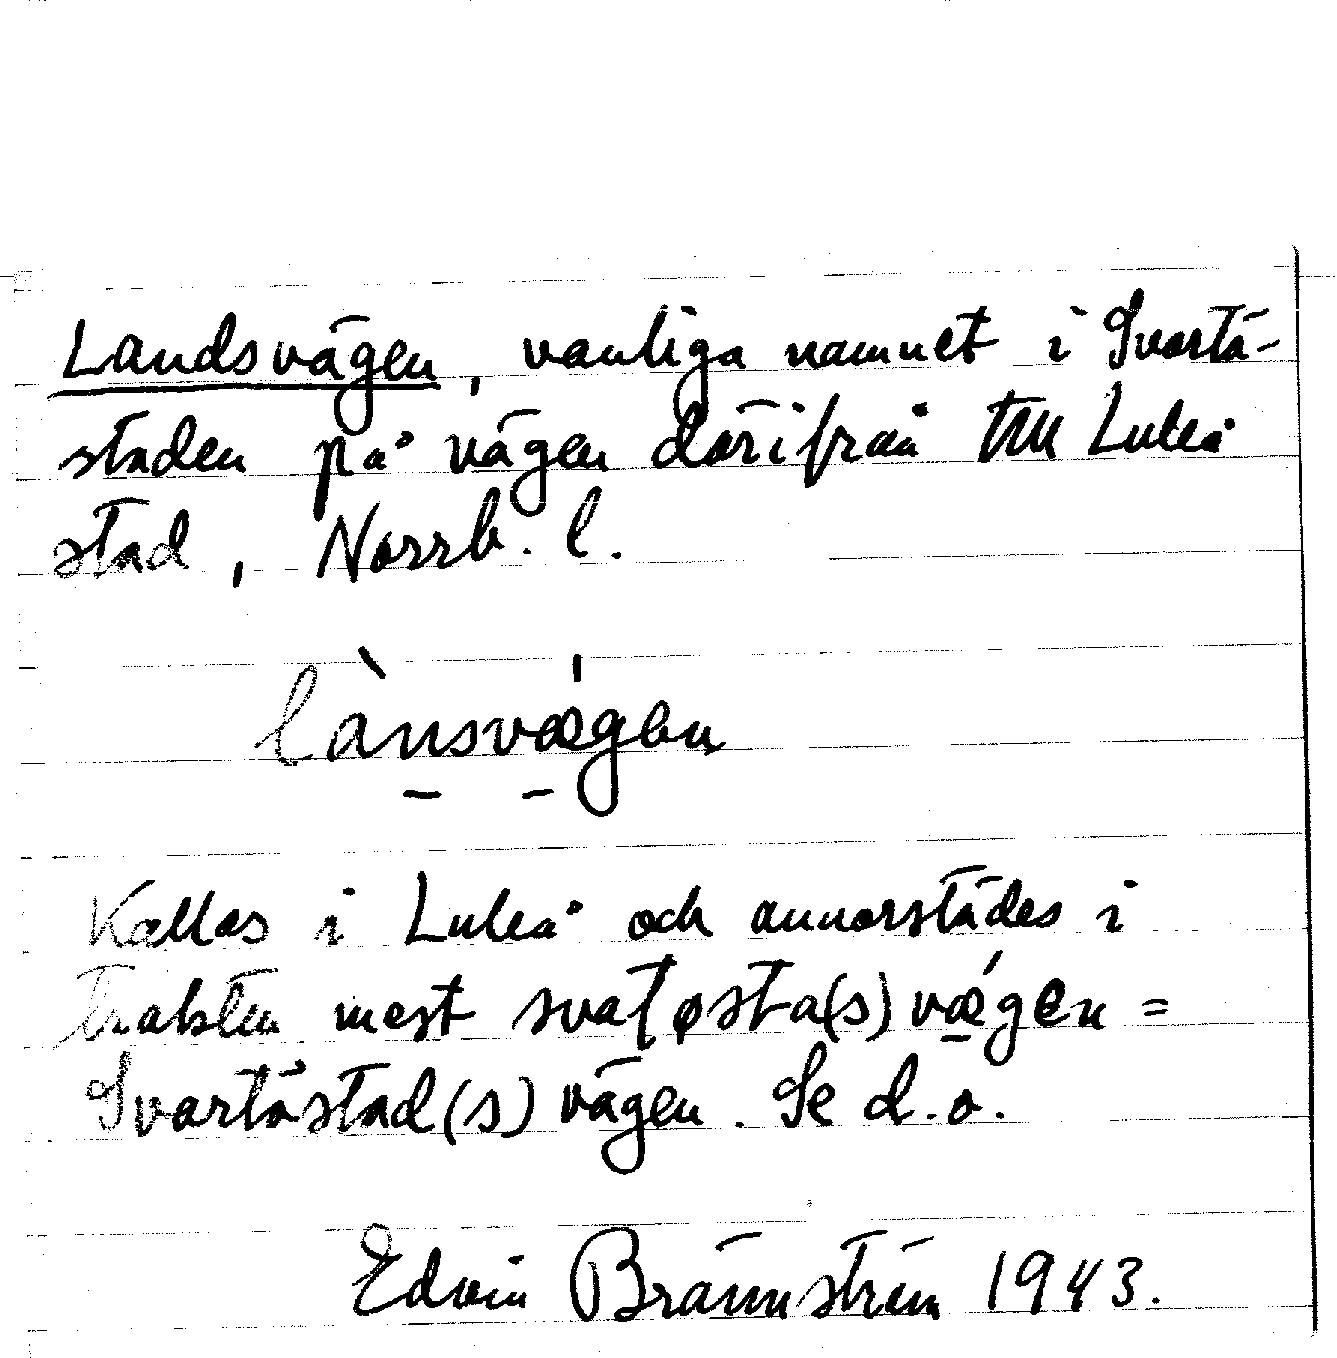 Landsvägen, vanliga namnet i Svartå-
staden på vägen därifrån till Luleå
stad, Norrb. l.
lànsvǽgen
Kallas i Luleå och annorstädes i
trakten mest svaʈøsta(s)vǽgen =
Svartåstad(s)vägen. Se d.o.
Edvin Brännström 1943.